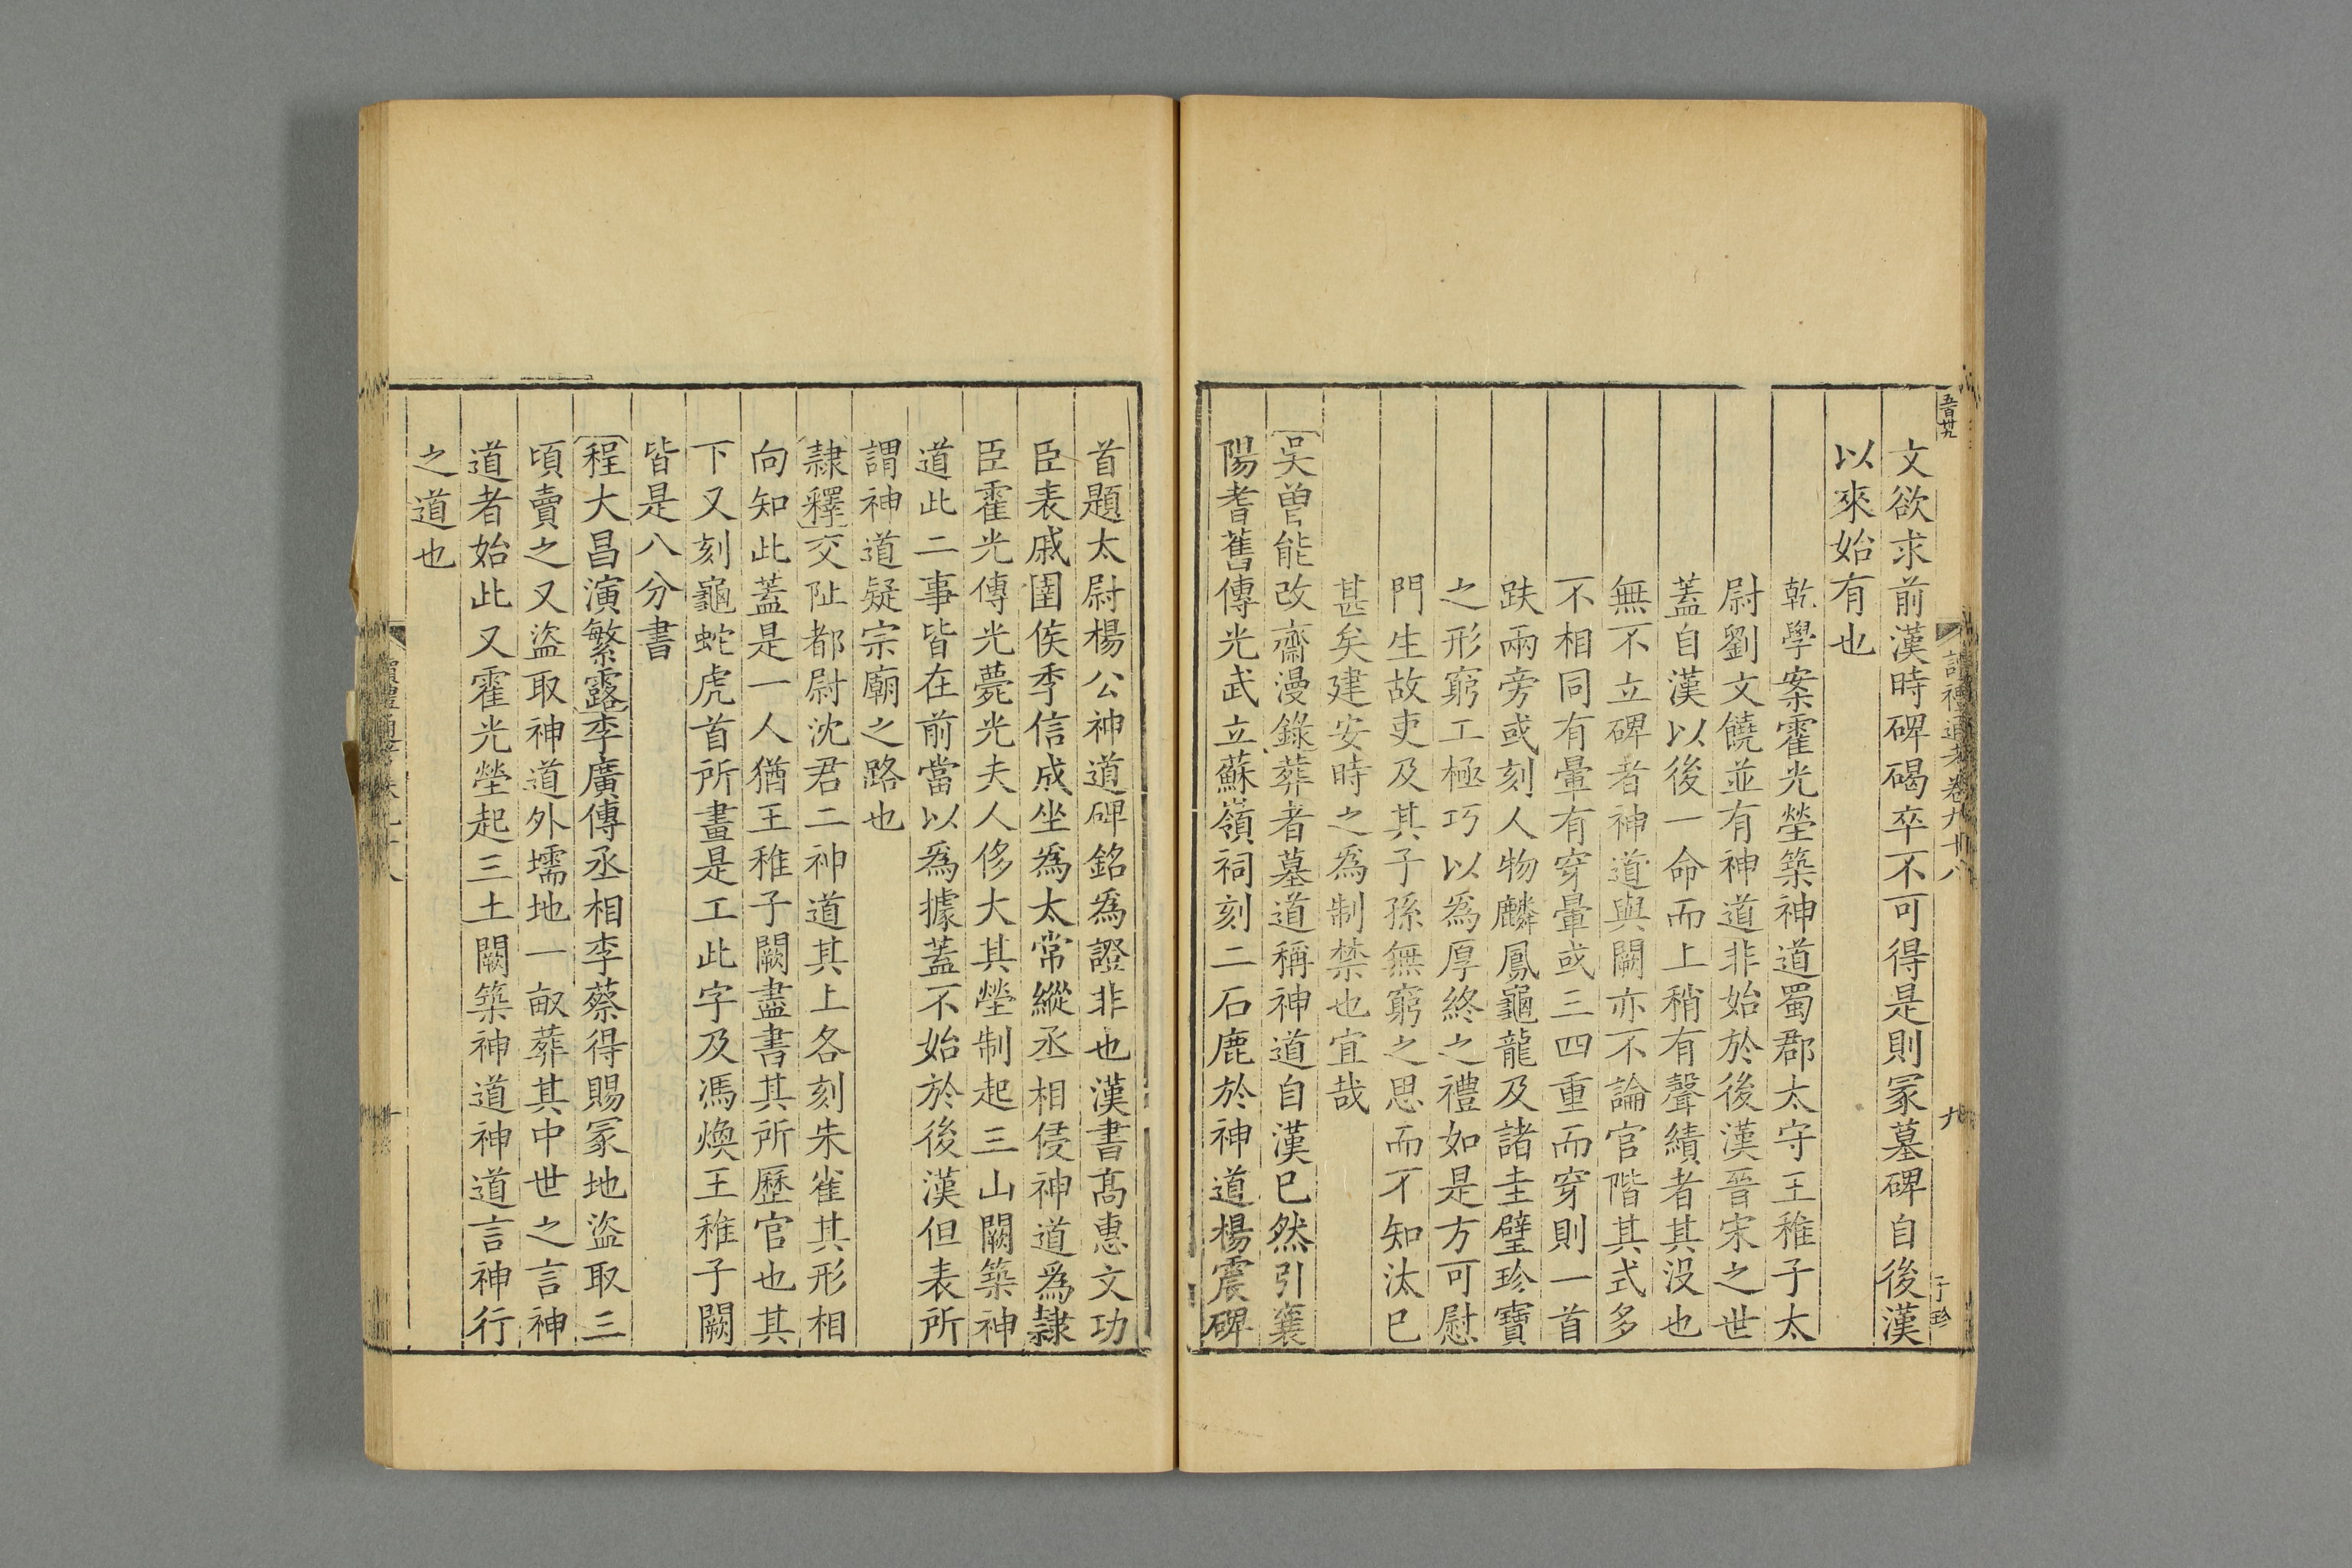 五百廿九
讀禮通考卷九十八
九
于珍
文欲求前漢時碑碣卒不可得是則冢墓碑自後漢
以來始有也
乾學案霍光塋築神道蜀郡太守王稚子太
尉劉文饒並有神道非始於後漢晉宋之世
蓋自漢以後一命而上稍有聲績者其没也
無不立碑者神道與闕亦不論官階其式多
不相同有暈有穿暈或三四重而穿則一首
趺兩旁或刻人物麟鳳龜龍及諸圭璧珍寶
之形窮工極巧以爲厚終之禮如是方可慰
門生故吏及其子孫無窮之思而不知汰已
甚矣建安時之爲制禁也宜哉
吳曾能改齋漫錄葬者墓道稱神道自漢已然引襄
陽耆舊傳光武立蘇嶺祠刻二石鹿於神道楊震碑
首題太尉楊公神道碑銘爲證非也漢書髙惠文功
臣表戚圉侯季信成坐爲太常縱丞相侵神道爲隸
臣霍光傳光薨光夫人侈大其塋制起三山闕築神
道此二事皆在前當以爲據蓋不始於後漢但表所
謂神道疑宗廟之路也
隸釋交阯都尉沈君二神道其上各刻朱雀其形相
向知此蓋是一人猶王稚子闕盡書其所歷官也其
下又刻龜蛇虎首所畫是工此字及馮煥王稚子闕
皆是八分書
程大昌演繁露李廣傳丞相李蔡得賜冢地盜取三
頃賣之又盜取神道外壖地一畝葬其中世之言神
道者始此又霍光塋起三土闕築神道神道言神行
之道也
讀禮通考卷九十八
十